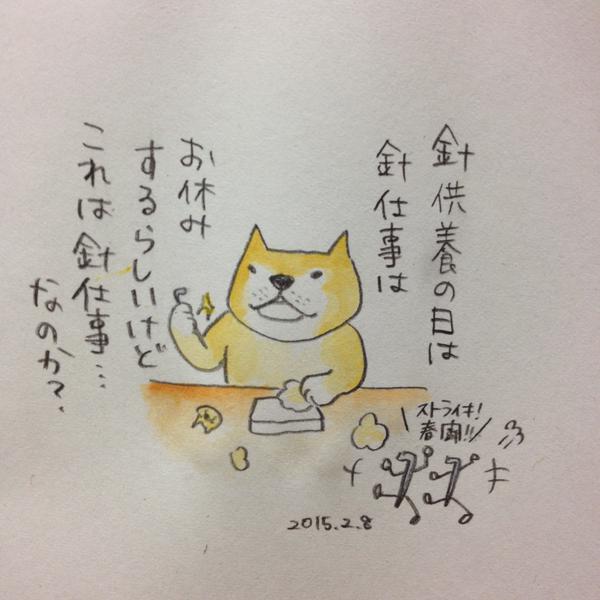 針供養の日は
針仕事は
お休み
するらしいけど
これは針仕事…
なのか?
ストライキ!
春闘!!
2015.2.8